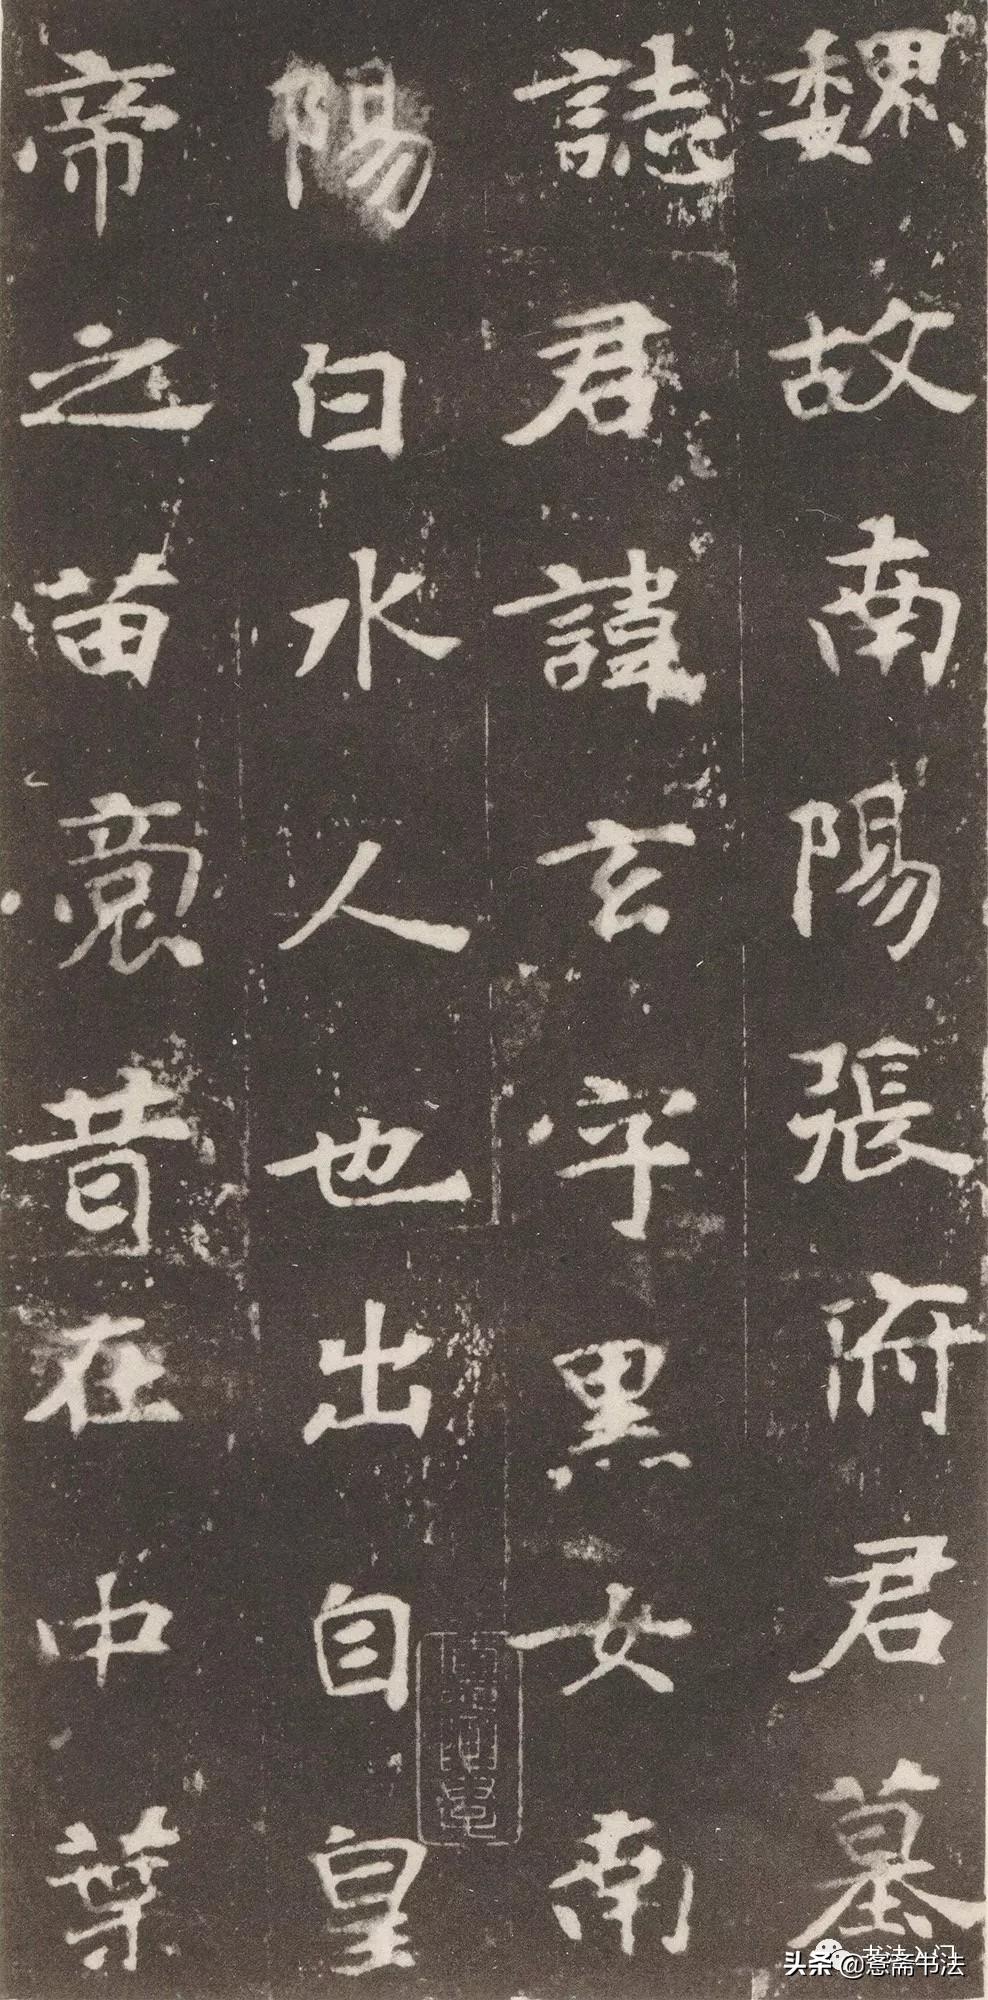 魏故南陽張府君墓
誌君諱玄字黑女南
陽白水人也出自皇
帝之苗裔昔在中葉
书法入门
头条 @惷斋书法